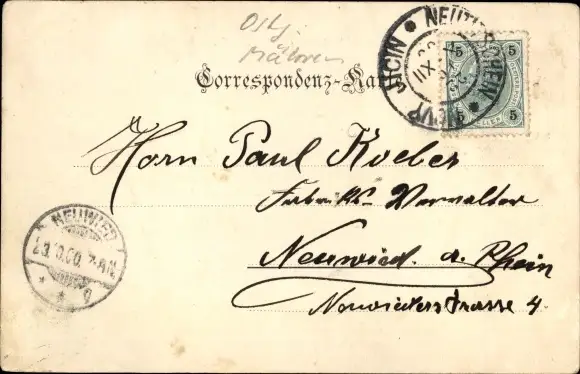 Ostf.
Mähren
Correspondenz-Karte
NEUTITSCHEIN * NOVÝ JIČÍN *
XII
5 5
5 5
Herrn Paul Koeber
Fabriks-Verwalter
Neuwied a. Rhein
Neuwiederstrasse 4
NEUWIED
23.10.00. 7-8N.
* * b